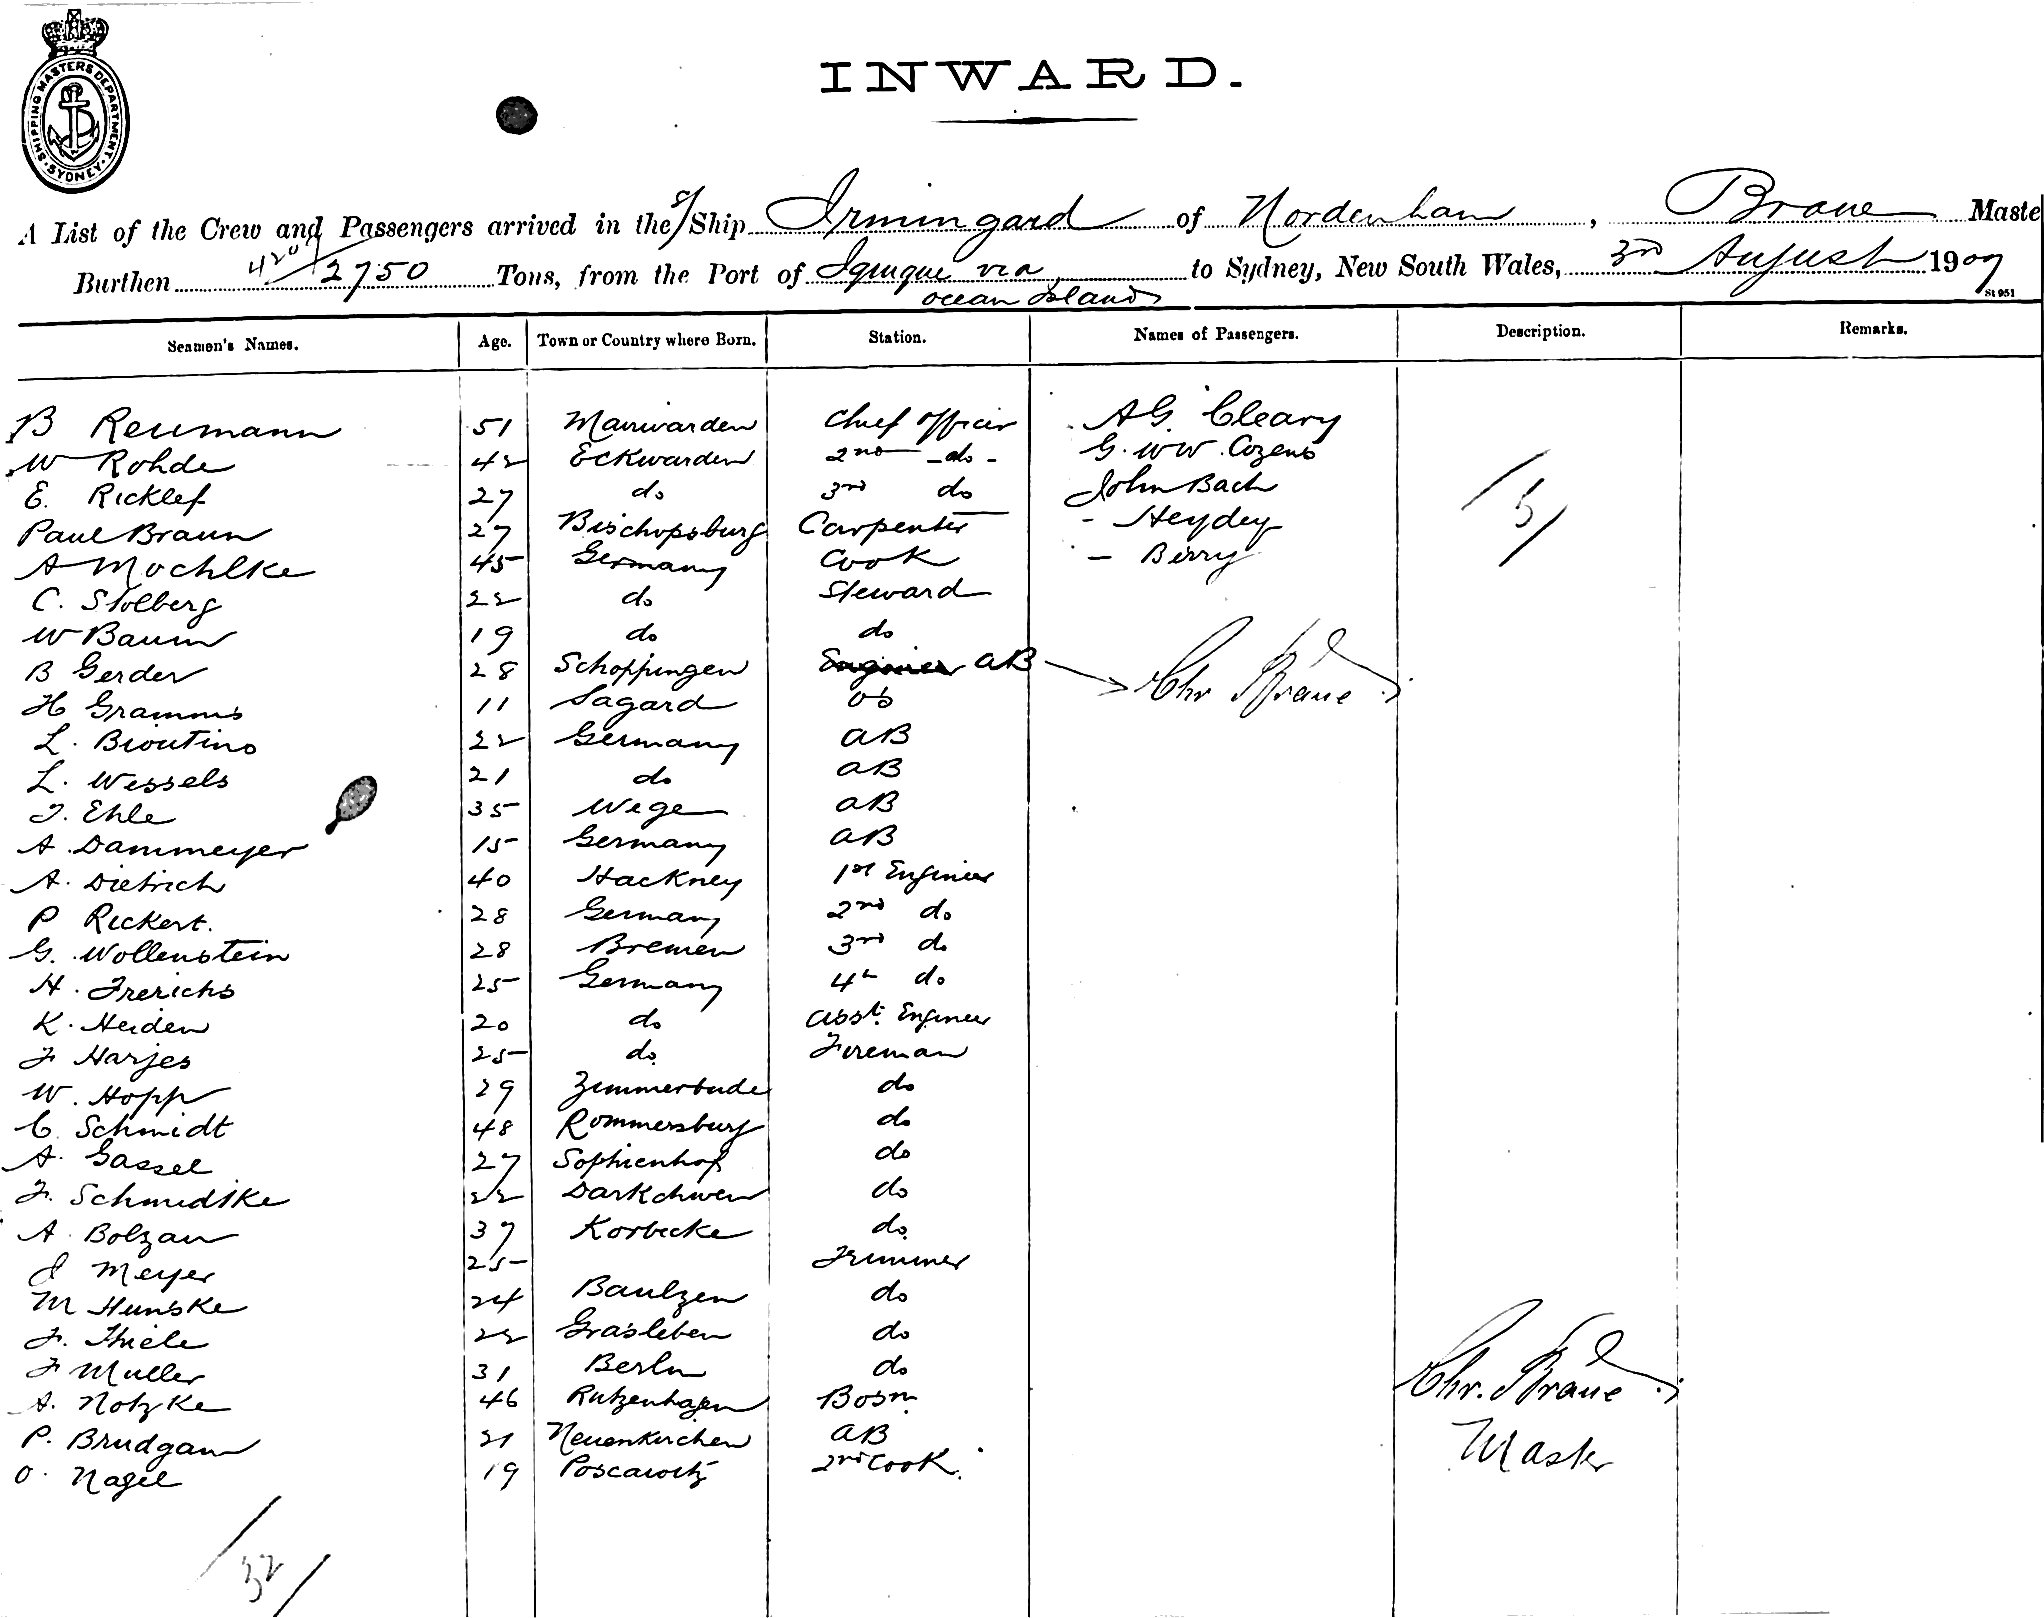 SHIPPING MASTERS DEPARTMENT · SYDNEY ·
INWARD.
A List of the Crew and Passengers arrived in the S/Ship Irmingard of Nordenham, Braue Maste
Burthen 4201/2750 Tons, from the Port of Iquique via ocean Island to Sydney, New South Wales, 3rd August 1907
St 951
Seamen's Names. Age. Town or Country where Born. Station. Names of Passengers. Description. Remarks.
B Reumann 51 Manwarden Chief officer AG. Cleary
W Rohde 42 Eckwarden 2nd - do - G. WW. Cozens
E. Ricklef 27 do 3rd do John Bach
Paul Braun 27 Bischopsburg Carpenter - Heydey
A Mochlke 45 Germany Cook - Berry
5
C. Stolberg 22 do Steward
W Baum 19 do do
B Gerder 28 Schoppingen Engineer AB Chr Braue
H Gramms 11 Sagard OS
L. Bioutino 22 Germany AB
L. Wessels 21 do AB
J. Ehle 35 Wege AB
A. Dammeyer 15 Germany AB
A. Dietrich 40 Hackney 1st Engineer
P Rickert. 28 Germany 2nd do
G. Wollenstein 28 Bremen 3rd do
H. Frerichs 25 Germany 4th do
K. Heiden 20 do asst. Engineer
F Harjes 25 do Fireman
W. Hopp 29 Zimmerbude do
C. Schmidt 48 Rommersburg do
A. Gassel 27 Sophienhof do
F. Schmidtke 22 Darkchwen do
A. Bolzau 37 Korbecke do
J Meyer 25 Trimmer
M Hunske 24 Bautzen do
F. Thiele 22 Grasleben do
F Muller 31 Berlin do Chr. Braue
A. Notzke 46 Rutzenhagen Bosn.
P. Brudgam 21 Neuenkirchen AB Master
O. Nagel 19 Poscawitz 2nd Cook.
32